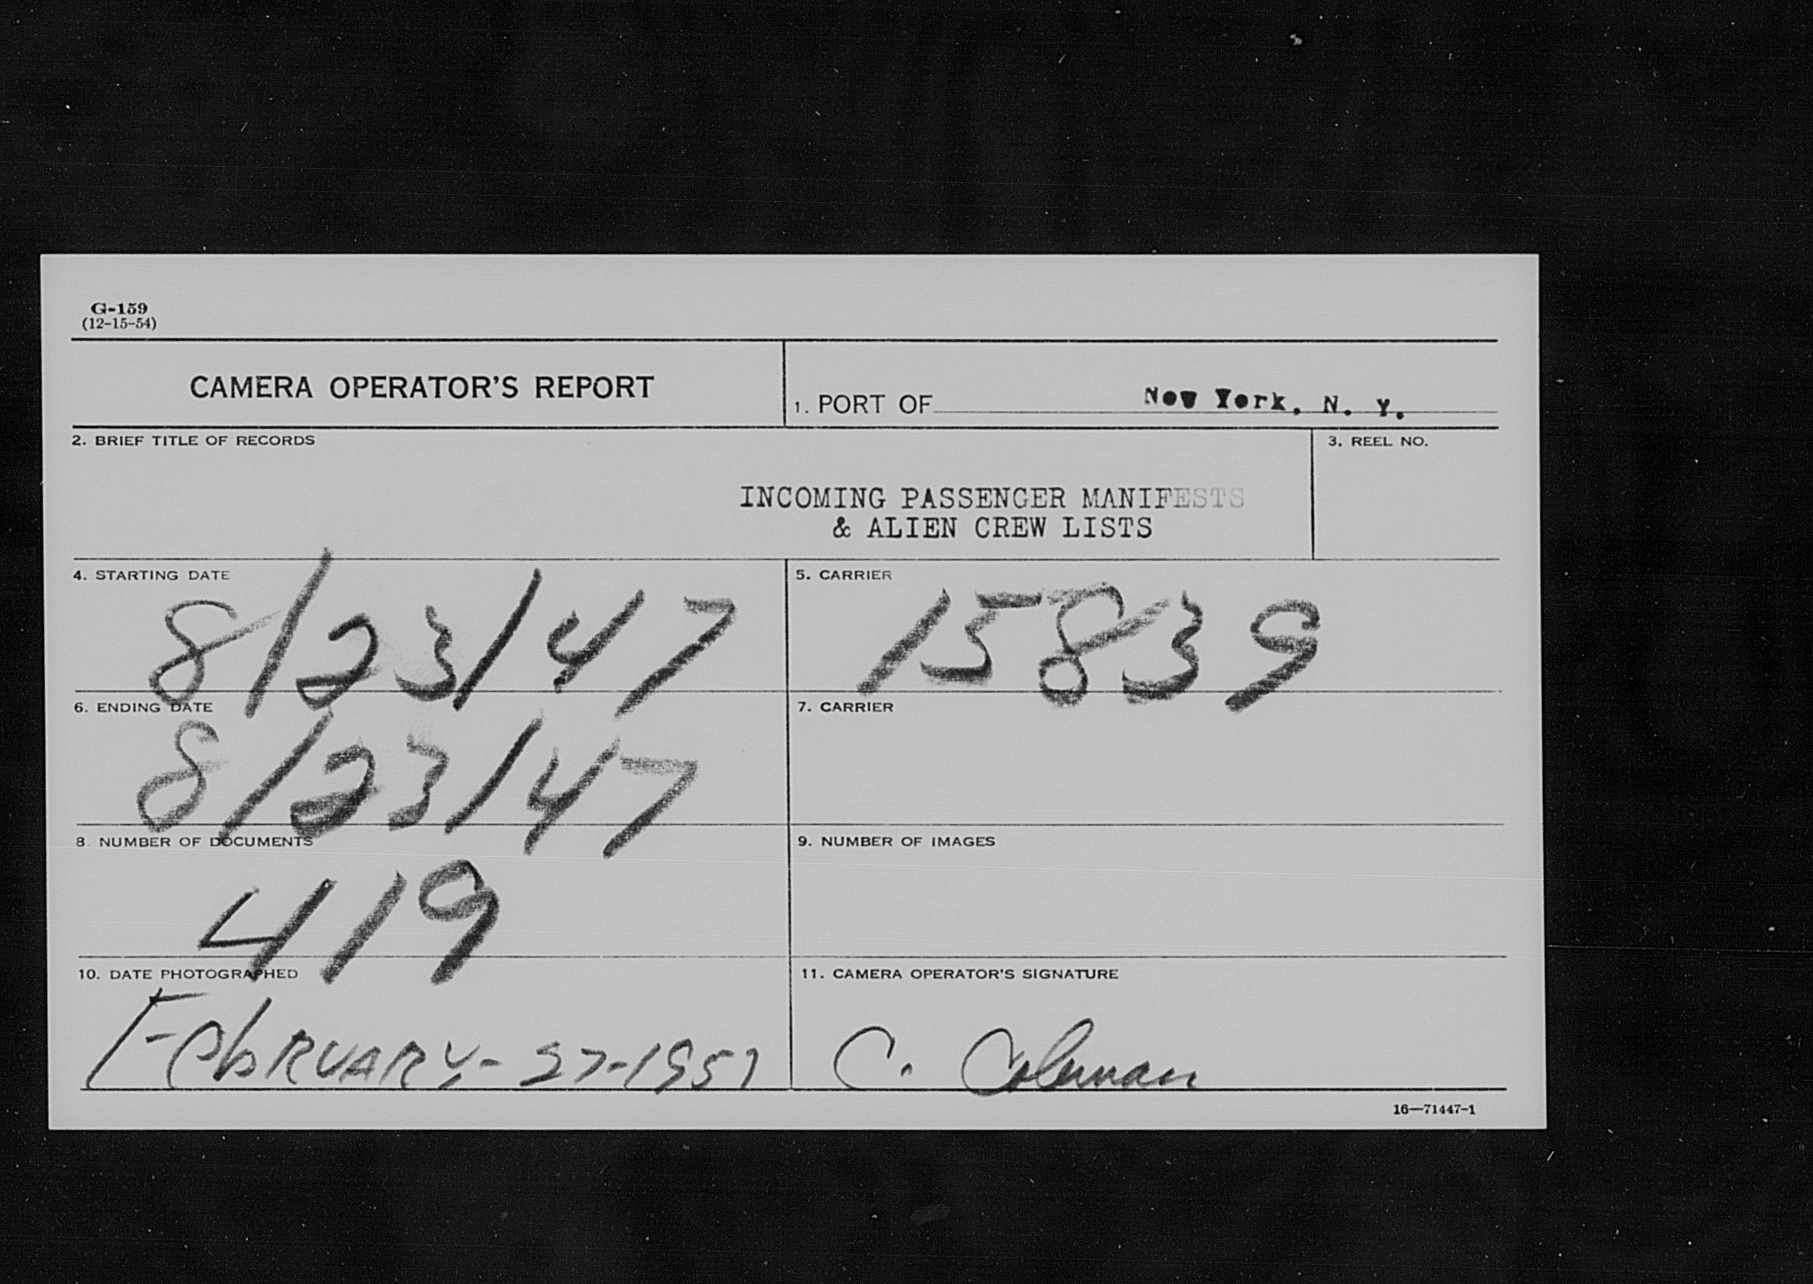 G-159
(12-15-54)
CAMERA OPERATOR'S REPORT
1. PORT OF New York, N. Y.
2. BRIEF TITLE OF RECORDS
3. REEL NO.
INCOMING PASSENGER MANIFESTS
& ALIEN CREW LISTS
4. STARTING DATE
8/23/47
5. CARRIER
15839
6. ENDING DATE
8/23/47
7. CARRIER
8 NUMBER OF DOCUMENTS
419
9. NUMBER OF IMAGES
10. DATE PHOTOGRAPHED
FebRUARY-27-1957
11. CAMERA OPERATOR'S SIGNATURE
C. Coleman
16—71447-1